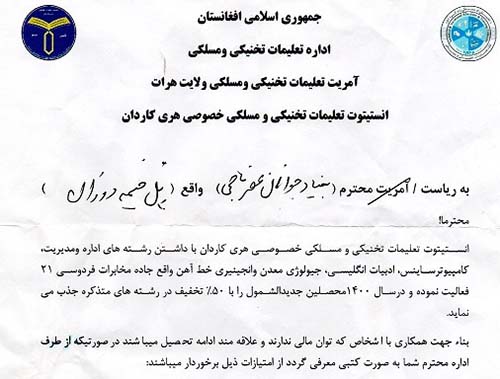 جمهوری اسلامی افغانستان
اداره تعلیمات تخنیکی ومسلکی
آمریت تعلیمات تخنیکی ومسلکی ولایت هرات
انستیتوت تعلیمات تخنیکی و مسلکی خصوصی هری کاردان
به ریاست / آمریت محترم ( بنیاد جوانان ) واقع ( پل )
محترما!
انستیتوت تعلیمات تخنیکی و مسلکی خصوصی هری کاردان با داشتن رشته های اداره ومدیریت،
کامپیوترساینس، ادبیات انگلیسی، جیولوژی معدن وانجینیری خط آهن واقع جاده مخابرات فردوسی ۲۱
فعالیت نموده و درسال ۱۴۰۰محصلین جدیدالشمول را با ۵۰٪ تخفیف در رشته های متذکره جذب می
نماید.
بناء جهت همکاری با اشخاص که توان مالی ندارند و علاقه مند ادامه تحصیل میباشند در صورتیکه از طرف
اداره محترم شما به صورت کتبی معرفی گردد از امتیازات ذیل برخوردار میباشند: